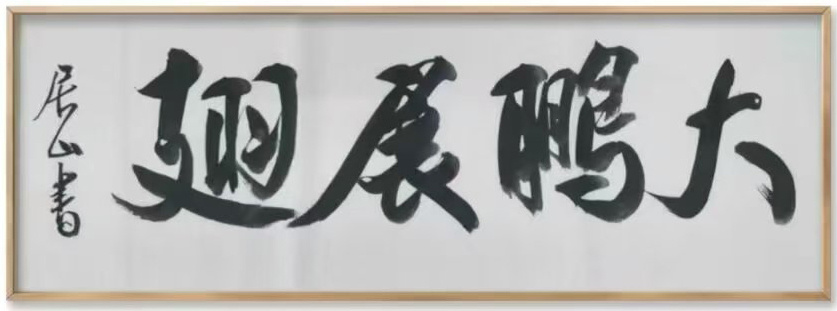 大鹏展翅
居山書